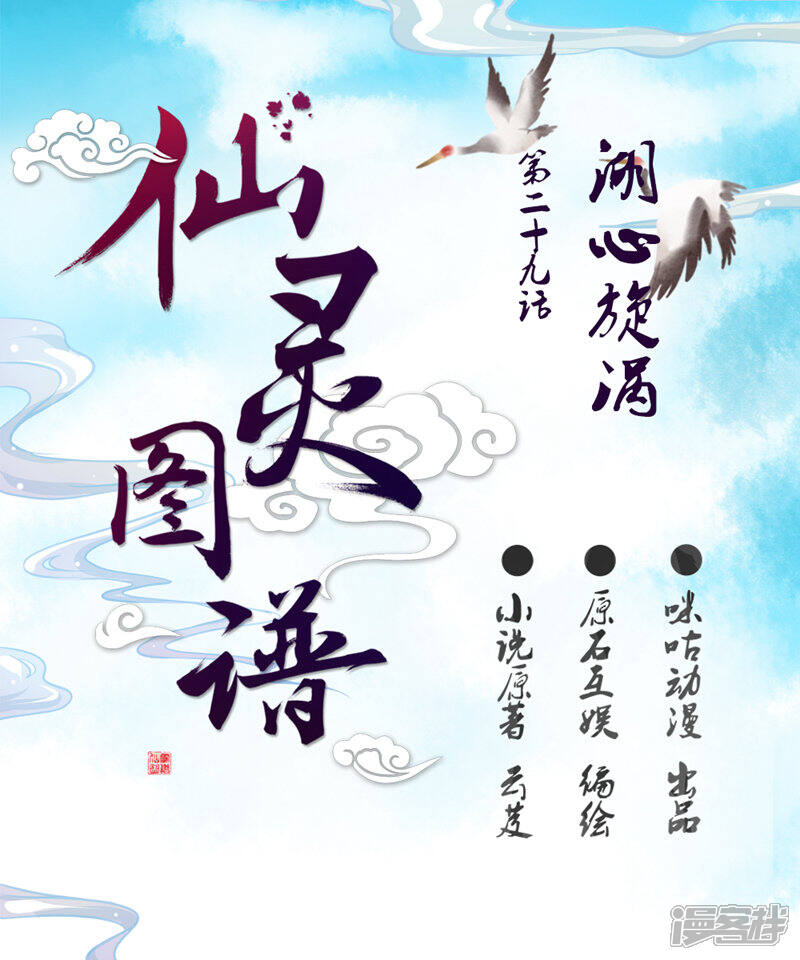 仙灵图谱
第二十九话
湖心旋涡
咪咕动漫 出品
原石互娱 编绘
小说原著 云芨
漫客栈